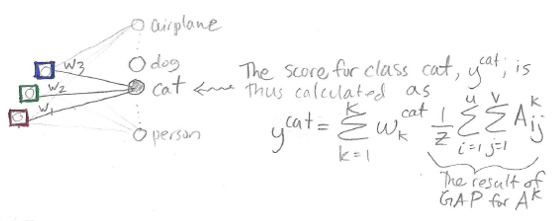 airplane
dog
cat
person
w3
w2
w1
The score for class cat, y^cat, is
thus calculated as
y^cat = Σ_{k=1}^{K} w_k^cat 1/Z Σ_{i=1}^{u} Σ_{j=1}^{v} A_{ij}^k
The result of
GAP for A^k